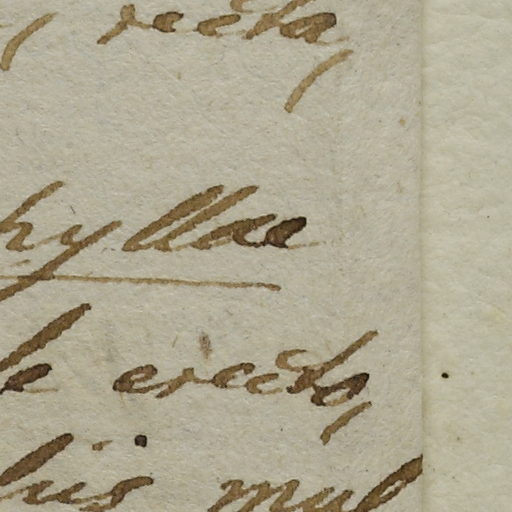 , recta,
hyllae
le erecto,
bus mul